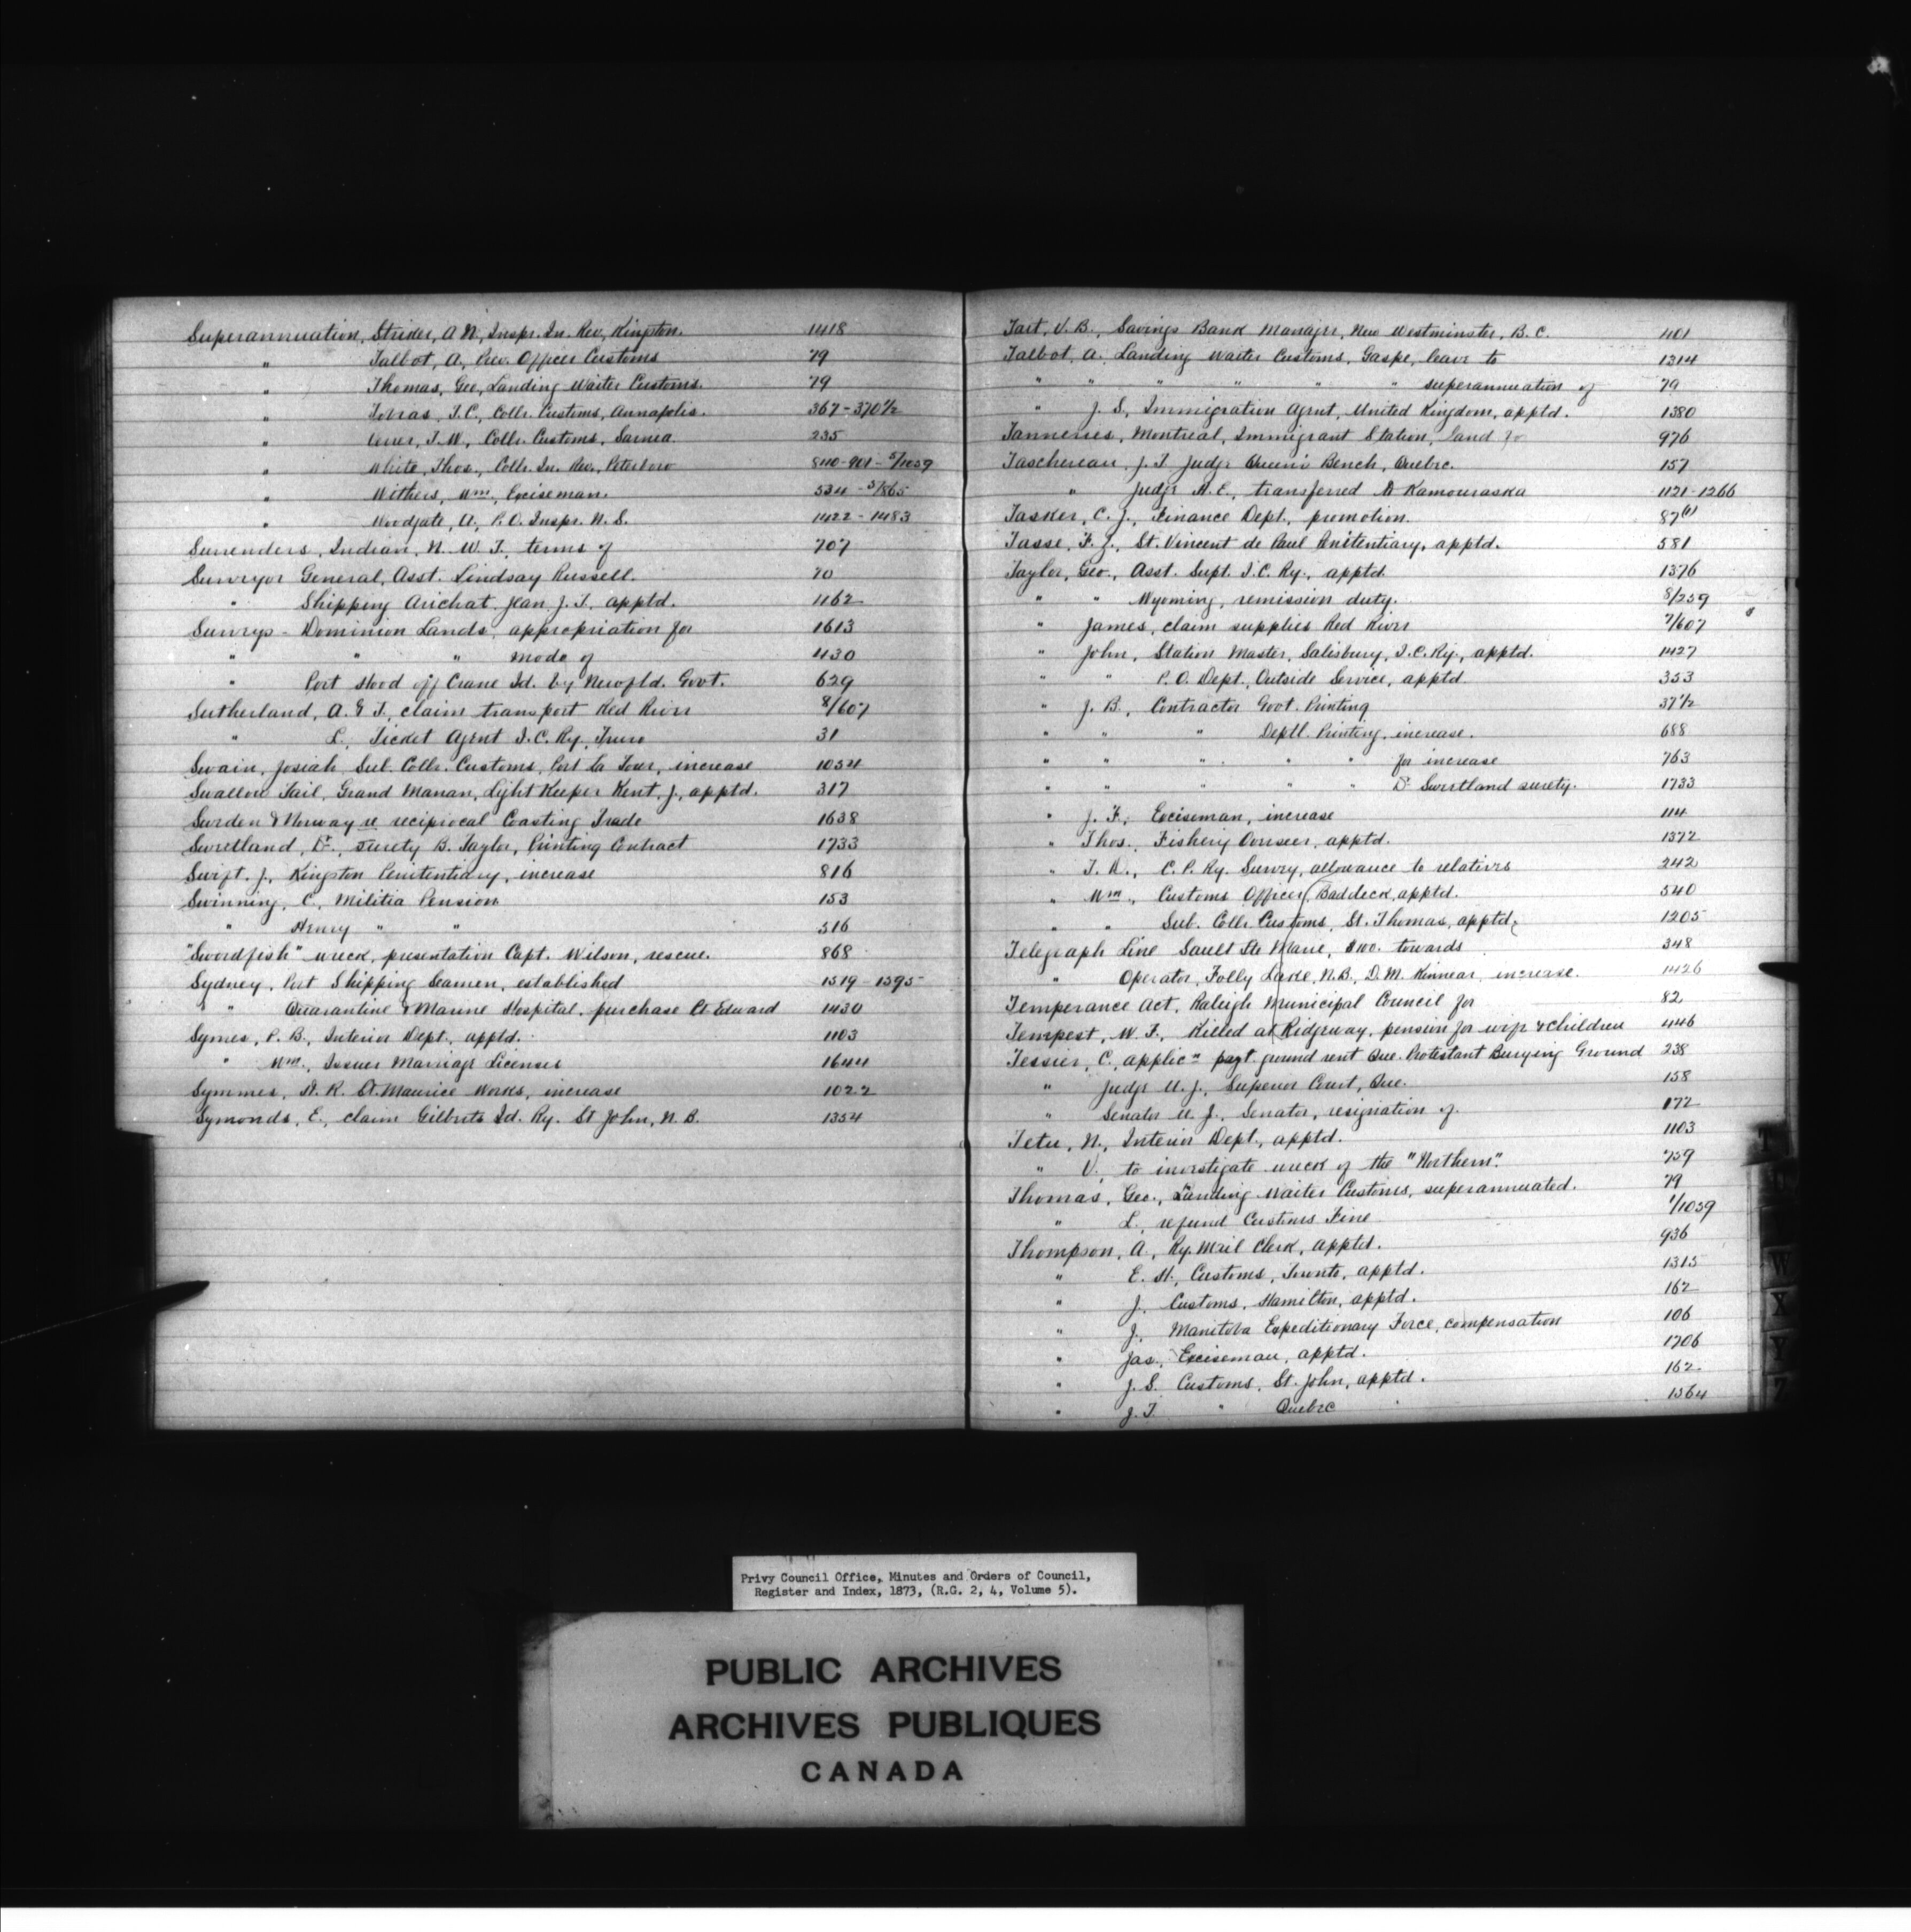 Superannuation, Striker, A N, Inspr. In. Rev, Kingston. 1418
" Talbot, A., Prev. Officer Customs 79
" Thomas, Geo, Landing Waiter Customs. 79
" Tobias, T.C., Collr. Customs, Annapolis. 367-370½
" T. W., Collr. Customs, Sarnia 235
" White, Thos., Collr. In. Rev., Peterboro 840-901-5/1059
" Withers, Wm, Exciseman. 534-5/865
" Woodgate, A., P.O. Inspr. N. S. 1422-1483
Surrenders, Indian, N. W. T., terms of 707
Surveyor General, Asst. Lindsay Russell. 70
" Shipping Arichat, Jean J. T, apptd. 1162
Surveys - Dominion Lands, appropriation for 1613
" " " Mode of 1130
" Port Hood off Crane Id. by Newfld. Govt. 629
Sutherland, A. & T., claim transport Red River 8/607
" L., Ticket Agent I.C. Ry, Truro 31
Swain, Josiah, Sub. Collr. Customs, Port La Tour, increase 1054
Swallow Tail, Grand Manan, Light Keeper Kent, J., apptd. 317
Sweden & Norway re reciprocal Coasting Trade 1638
Sweetland, Dr., Surety B. Taylor, Printing Contract 1733
Swift, J., Kingston Penitentiary, increase 816
Swinning, C., Militia Pension 153
" Henry " " 516
"Swordfish" wreck, presentation Capt. Wilson, rescue. 868
Sydney, Port Shipping Seamen, established 1519-1595
" Quarantine & Marine Hospital, purchase Pt Edward 1430
Symes, P. B., Interior Dept., apptd. 1103
" Wm., Issuer Marriage Licenses 1644
Symmes, H. R. St. Maurice Works, increase 1022
Symonds, E., claim Gilberts Id. Ry. St John, N. B. 1354
V. B., Savings Bank Manager, New Westminster, B. C. 1101
Talbot, A. Landing Waiter Customs, Gaspe, leave to 1314
" " " " " " superannuation of 79
" J. S., Immigration Agent, United Kingdom, apptd. 1380
Tanneries, Montreal, Immigrant Station, land for 976
Taschereau, J. T. Judge Queen's Bench, Quebec. 157
" Judge H. E., transferred to Kamouraska 1121-1266
Tasker, C. J., Finance Dept., promotion. 87(1)
Tasse, F. Z., St. Vincent de Paul Penitentiary, apptd. 581
Taylor, Geo., Asst. Supt. I.C. Ry., apptd 1376
" " Wyoming, remission duty. 8/259
" James, claim supplies Red River 7/607
" John, Station Master, Salisbury, I.C. Ry., apptd. 1427
" " P.O. Dept., Outside Service, apptd 353
" J. B., Contractor Govt. Printing 37½
" " " Deptl. Printing, increase. 688
" " " " " for increase 763
" " " " " Dr Sweetland surety. 1733
" J. F., Exciseman, increase 114
" Thos., Fishery Overseer, apptd. 1372
" T. D., C. P. Ry. Survey, allowance to relatives 242
" Wm., Customs Officer, Baddeck, apptd. 540
" " Sub. Collr Customs, St. Thomas, apptd. 1205
Telegraph Line Sault Ste Marie, $100. towards 348
" Operator, Folly Lake, N.B., D. M. Kinnear, increase. 1426
Temperance Act, Raleigh Municipal Council for 82
Tempest, W. F., Killed at Ridgeway, pension for wife & children 446
Tessier, C., applicn payt. ground rent Que. Protestant Burying Ground 238
" Judge U. J., Superior Court, Que. 158
" Senator U. J., Senator, resignation of. 172
Tetu, N., Interior Dept., apptd. 1103
" V., to investigate wreck of the "Northern". 759
Thomas, Geo., Landing Waiter Customs, superannuated. 79
" L., refund Customs Fine 1/1059
Thompson, A., Ry. Mail Clerk, apptd. 936
" E. H., Customs, Toronto, apptd. 1315
" J., Customs, Hamilton, apptd. 162
" J., Manitoba Expeditionary Force, compensation 106
" Jas., Exciseman, apptd. 1706
" J. S. Customs, St. John, apptd. 162
" J. T. " Quebec " 1564
T
W
X
Y
Z
Privy Council Office, Minutes and Orders of Council,
Register and Index, 1873, (R.G. 2, 4, Volume 5).
PUBLIC ARCHIVES
ARCHIVES PUBLIQUES
CANADA